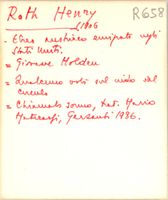 Roth Henry
R658
(1906
- Ebreo austriaco emigrato negli
Stati Uniti.
= Giovane Holden
= Qualcuno volò sul nido del
cuculo
= Chiamalo sonno, trad. Mario
Materassi, Garzanti 1986.